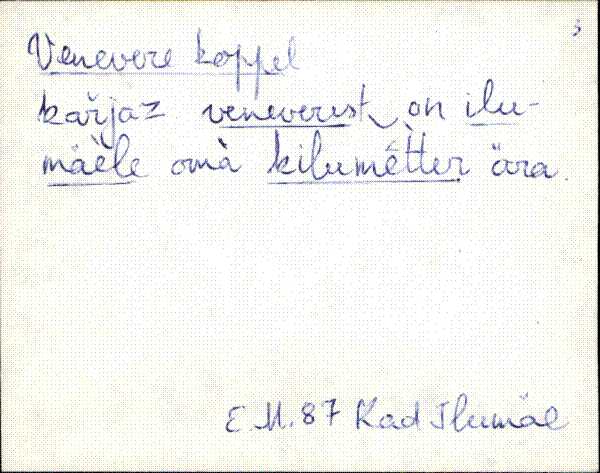 3
Venevere koppel
kar̆jaz veneverest‿on ilu-
mäèle omà kilumét̀ter ära.
E. M. 87 Kad Ilumäe